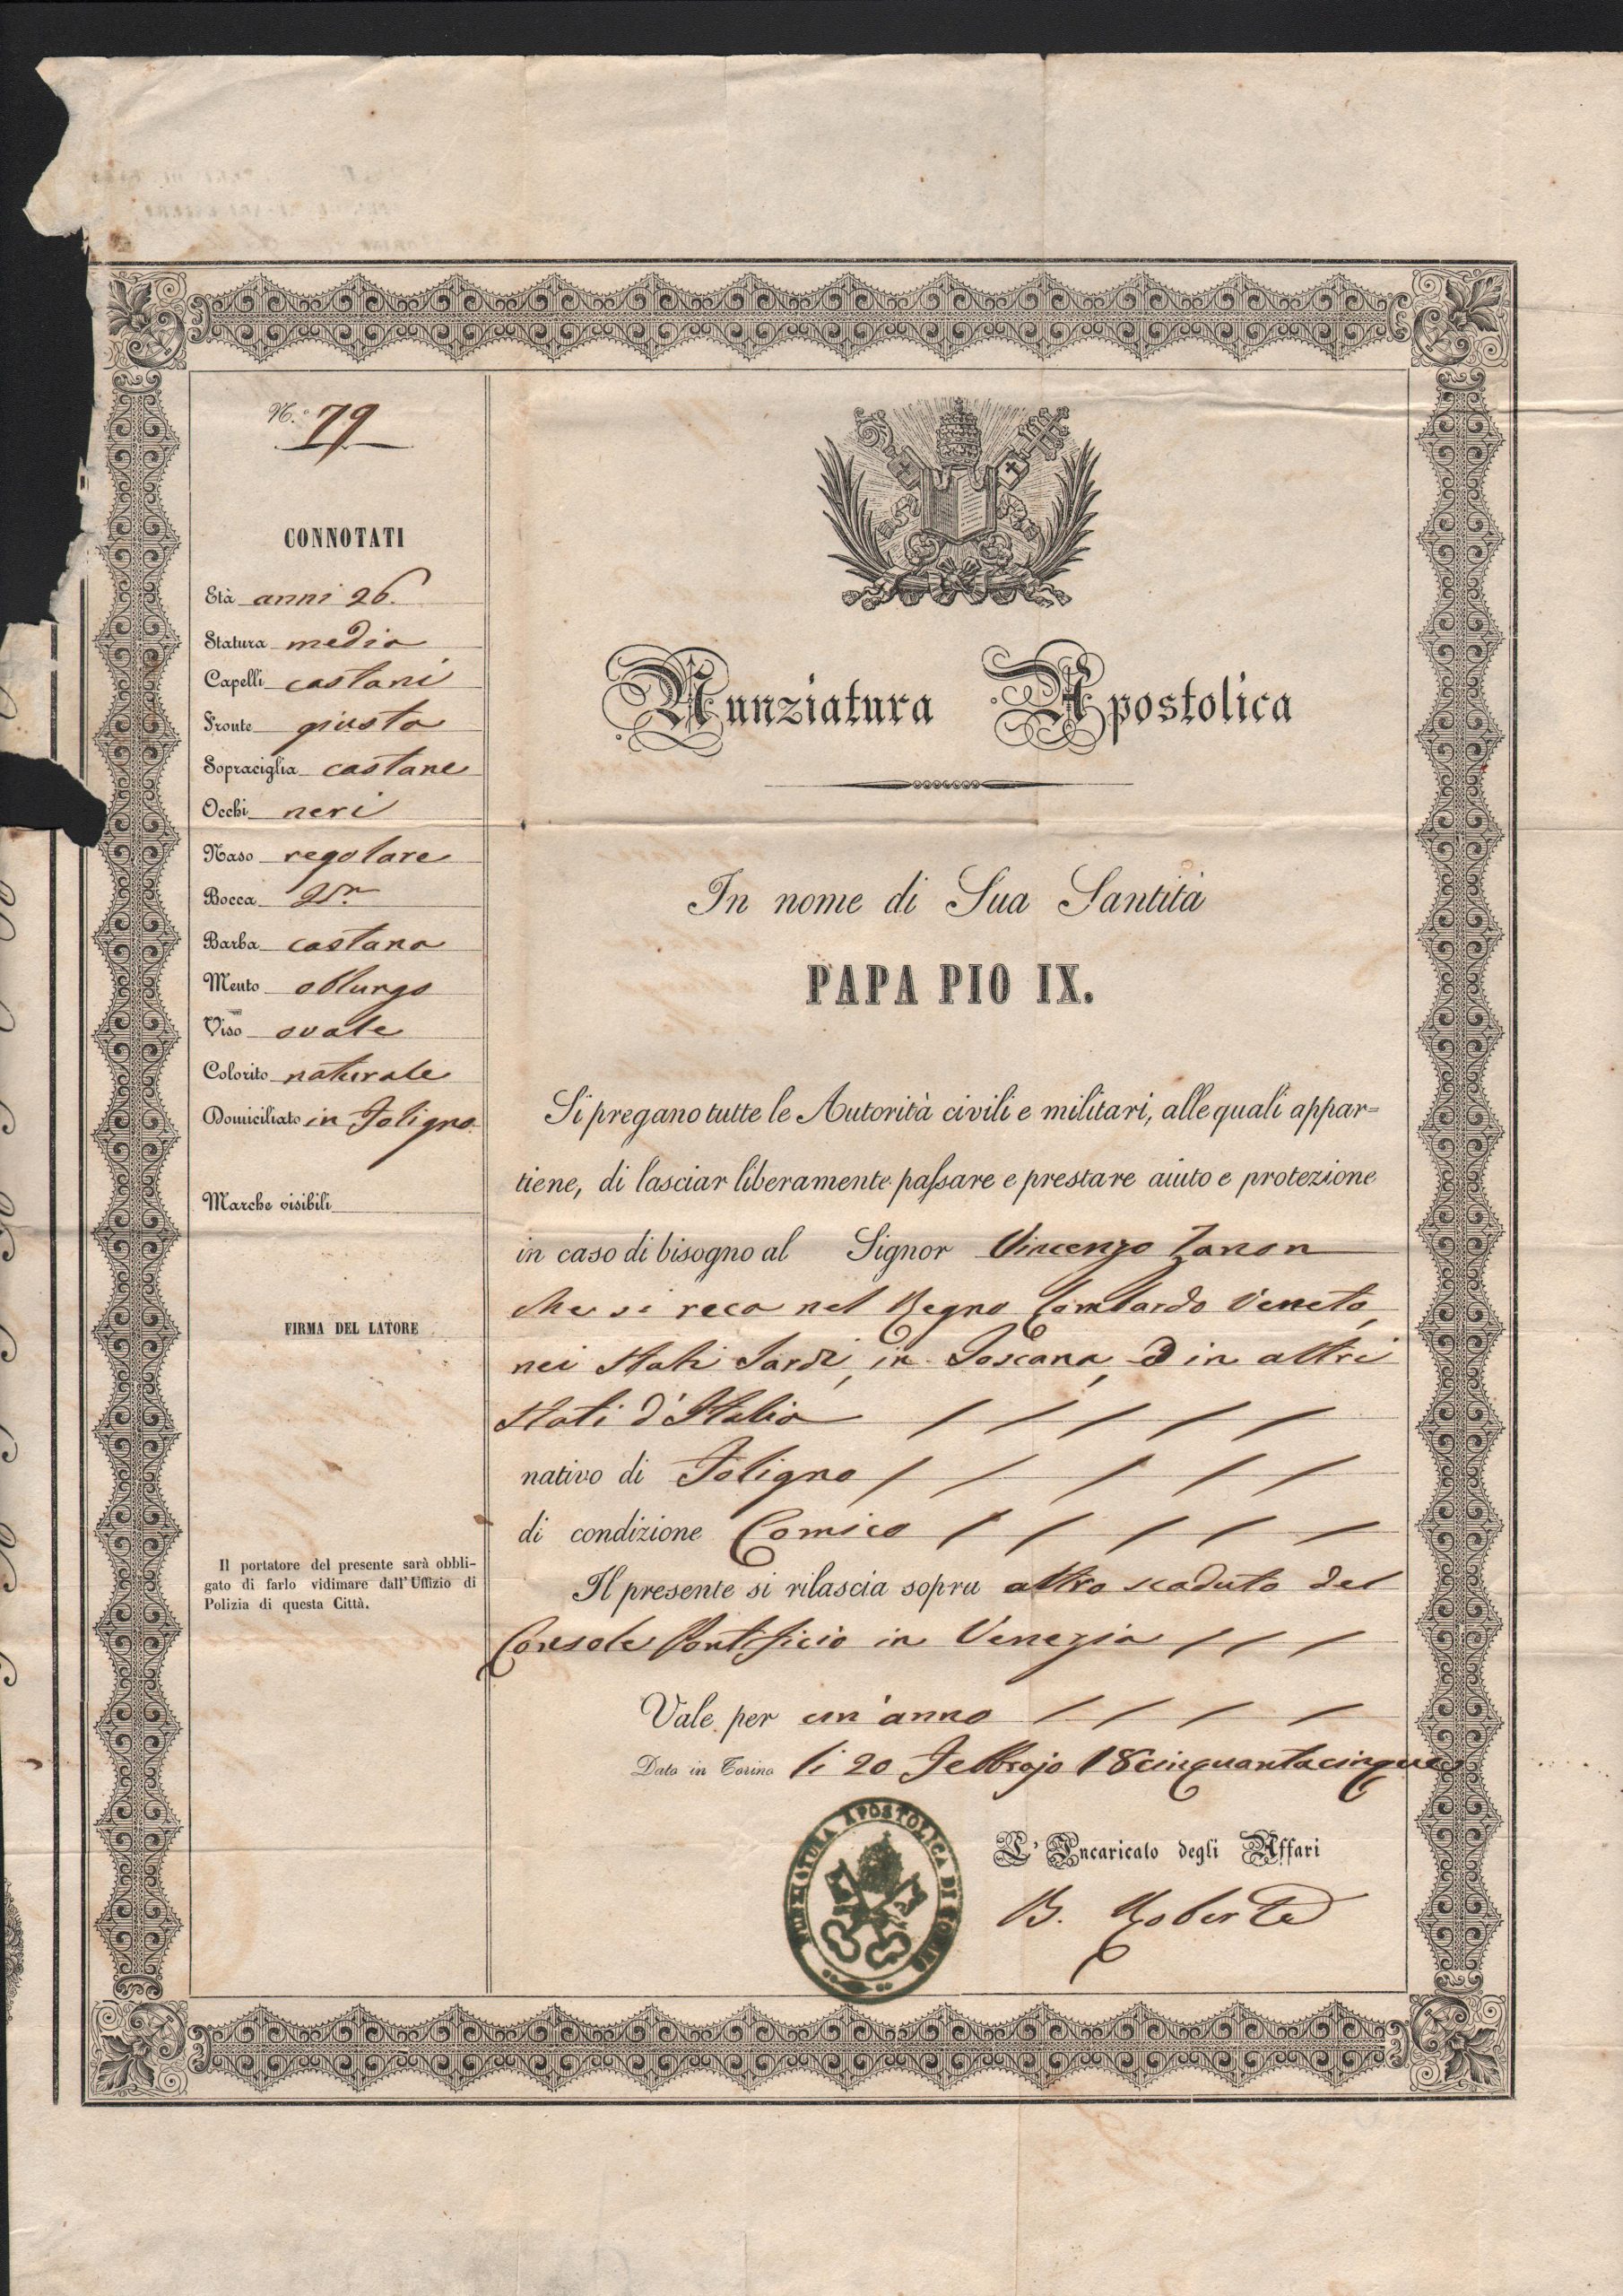 N.º 79
CONNOTATI
Età anni 26.
Statura media
Capelli castani
Fronte giusta
Sopraciglia castane
Occhi neri
Naso regolare
Bocca
Barba castana
Mento oblungo
Viso ovale
Colorito naturale
Domiciliato in Foligno
Marche visibili
FIRMA DEL LATORE
Il portatore del presente sarà obbli-
gato di farlo vidimare dall'Uffizio di
Polizia di questa Città.
Nunziatura Apostolica
In nome di Sua Santità
PAPA PIO IX.
Si pregano tutte le Autorità civili e militari, alle quali appar=
tiene, di lasciar liberamente passare e prestare aiuto e protezione
in caso di bisogno al Signor Vincenzo Zanon
che si reca nel Regno Lombardo Veneto,
nei Stati Sardi, in Toscana, ed in altri
Stati d'Italia
nativo di Foligno
di condizione Comico
Il presente si rilascia sopra altro scaduto del
Console Pontificio in Venezia
Vale per un'anno
Dato in Torino li 20 Febbrajo 18cinquantacinque
L'Incaricato degli Affari
B. Roberti
NUNZIATURA APOSTOLICA DI TORINO